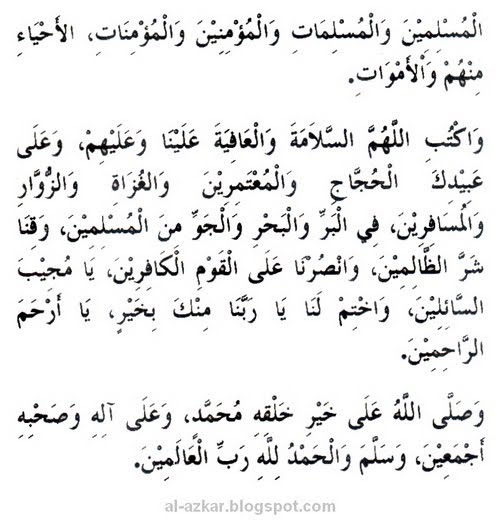 الْمُسْلِمِيْنَ وَالْمُسْلِمَاتِ وَالْمُؤْمِنِيْنَ وَالْمُؤْمِنَاتِ، الأَحْيَاءِ
مِنْهُمْ وَاْلأَمْوَاتِ.
وَاكْتُبِ اللَّهُمَّ السَّلاَمَةَ وَالْعَافِيَةَ عَلَيْنَا وَعَلَيْهِمْ، وَعَلَى
عَبِيْدِكَ الْحُجَّاجِ وَالْمُعْتَمِرِيْنَ وَالْغُزَاةِ وَالزُّوَّارِ
وَالْمُسَافِرِيْنَ، فِي الْبَرِّ وَالْبَحْرِ وَالْجَوِّ مِنَ الْمُسْلِمِيْنَ، وَقِنَا
شَرَّ الظَّالِمِيْنَ، وَانْصُرْنَا عَلَى الْقَوْمِ الْكَافِرِيْنَ، يَا مُجِيْبَ
السَّائِلِيْنَ، وَاخْتِمْ لَنَا يَا رَبَّنَا مِنْكَ بِخَيْرٍ، يَا أَرْحَمَ
الرَّاحِمِيْنَ.
وَصَلَّى اللَّهُ عَلَى خَيْرِ خَلْقِهِ مُحَمَّدٍ، وَعَلَى آلِهِ وَصَحْبِهِ
أَجْمَعِيْنَ، وَسَلَّمَ وَالْحَمْدُ لِلَّهِ رَبِّ الْعَالَمِيْنَ.
al-azkar.blogspot.com